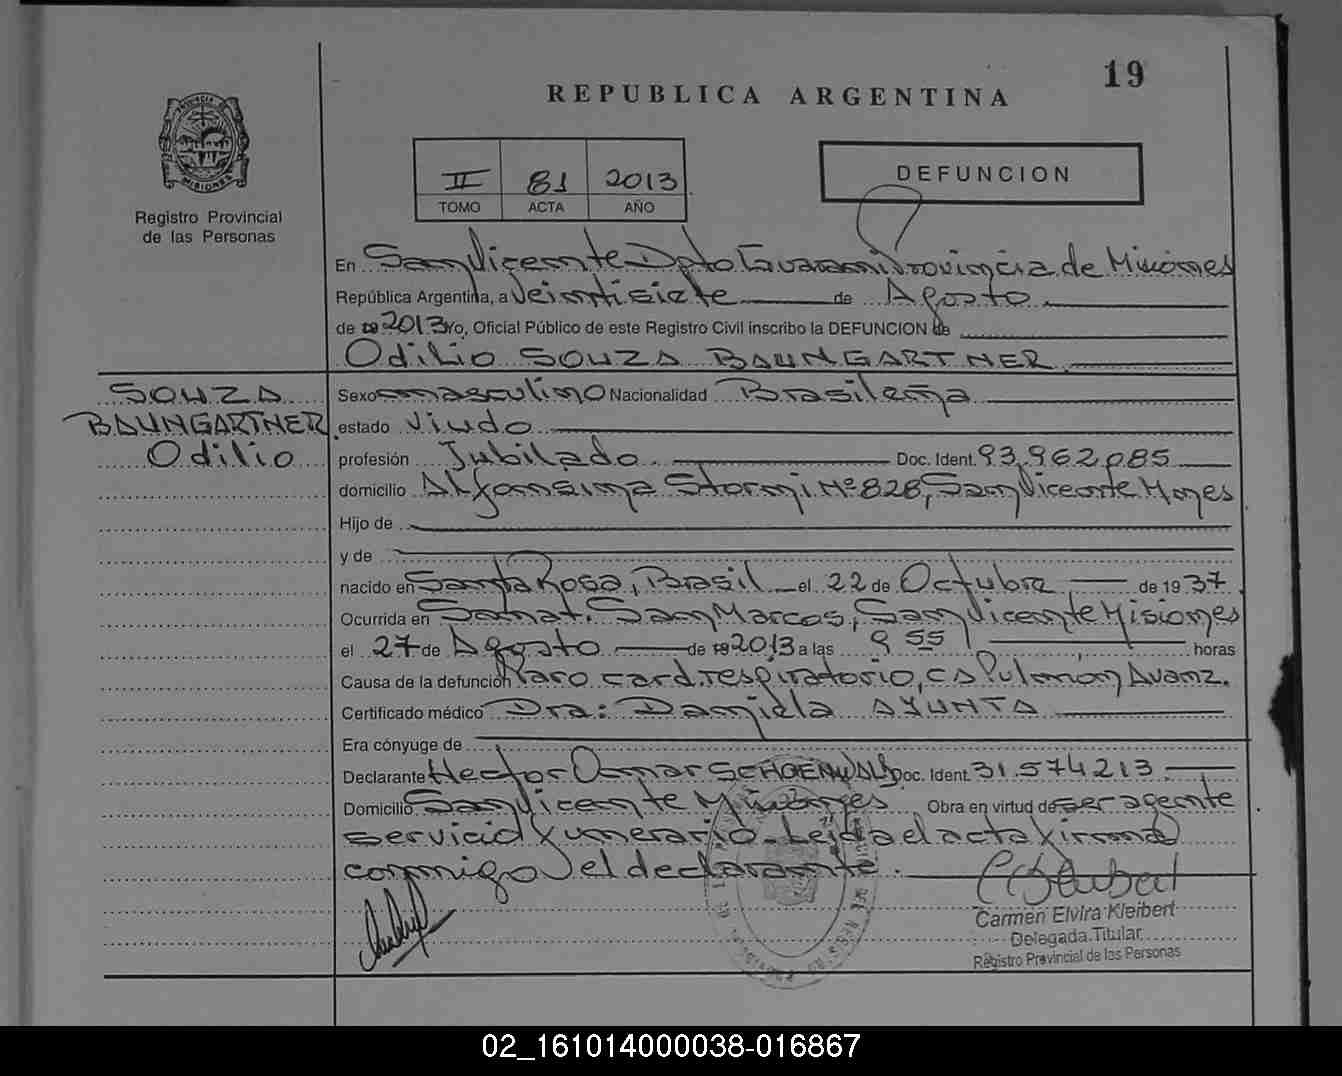 19
REPUBLICA ARGENTINA
PROVINCIA DE
MISIONES
Registro Provincial
de las Personas
II 81 2013
TOMO ACTA AÑO
DEFUNCION
En San Vicente Dpto Guarani Provincia de Misiones
República Argentina, a veintisiete de Agosto
de 19 2013 Yo, Oficial Público de este Registro Civil inscribo la DEFUNCION de
Odilio SOUZA BAUNGARTNER
SOUZA
BAUNGARTNER
Odilio
Sexo masculino Nacionalidad Brasileña
estado viudo
profesión Jubilado Doc. Ident. 93.962.085
domicilio Alfonsina Storni Nº 828, San Vicente Mnes
Hijo de
y de
nacido en Santa Rosa, Brasil el 22 de Octubre de 19 37
Ocurrida en Sanat. San Marcos, San Vicente Misiones
el 27 de Agosto de 19 2013 a las 9 55 horas
Causa de la defunción Paro card. respiratorio, cs Pulmón Avanz.
Certificado médico Dra: Daniela AYUNTA
Era cónyuge de
Declarante Hector Omar SCHOENWALD Doc. Ident. 31.574.213
Domicilio San Vicente Misiones Obra en virtud de ser agente
servicio funerario. Leida el acta firma
conmigo el declarante.
Carmen Elvira Kleibert
Delegada Titular
Registro Provincial de las Personas
02_161014000038-016867